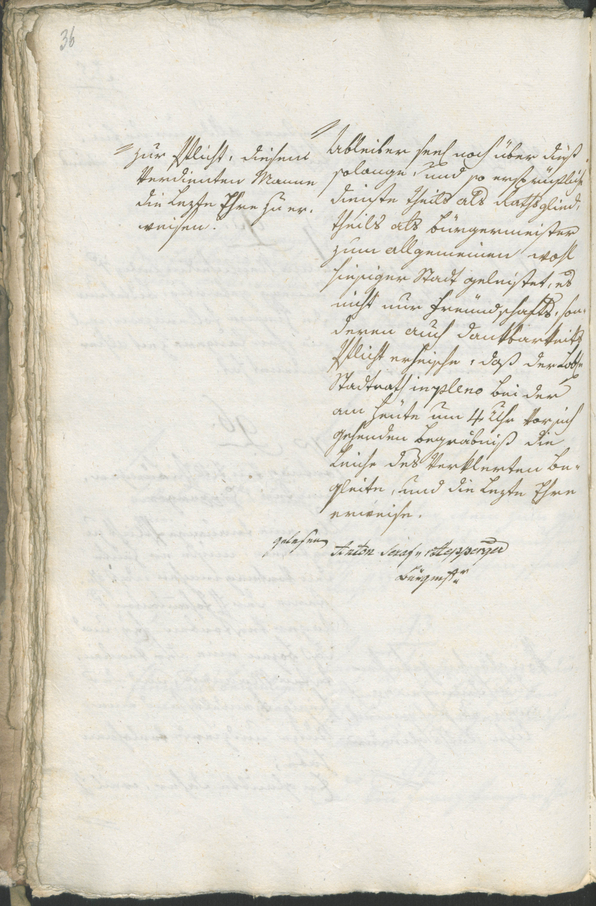 36
zur Pflicht, diesem
Verdienten Manne
die Lezte Ehre zu er-
weisen.
Ableiber seel. noch über dieß
solange, und so ersprüßliche
dienste theils als Rathsglied,
theils als Bürgermeister
zum allgemeinen wohl
hiesiger Stadt geleistet, es
nicht nur Freündschafts, son-
deren auch dankbarkeits
Pflicht erheische, daß der
Stadtrath in pleno bei der
am heute um 4 Uhr vor sich
gehenden begräbniß die
Leiche des Verklerten be-
gleite, und die Lezte Ehre
erweise.
gelesen
Anton
Bürgmstr